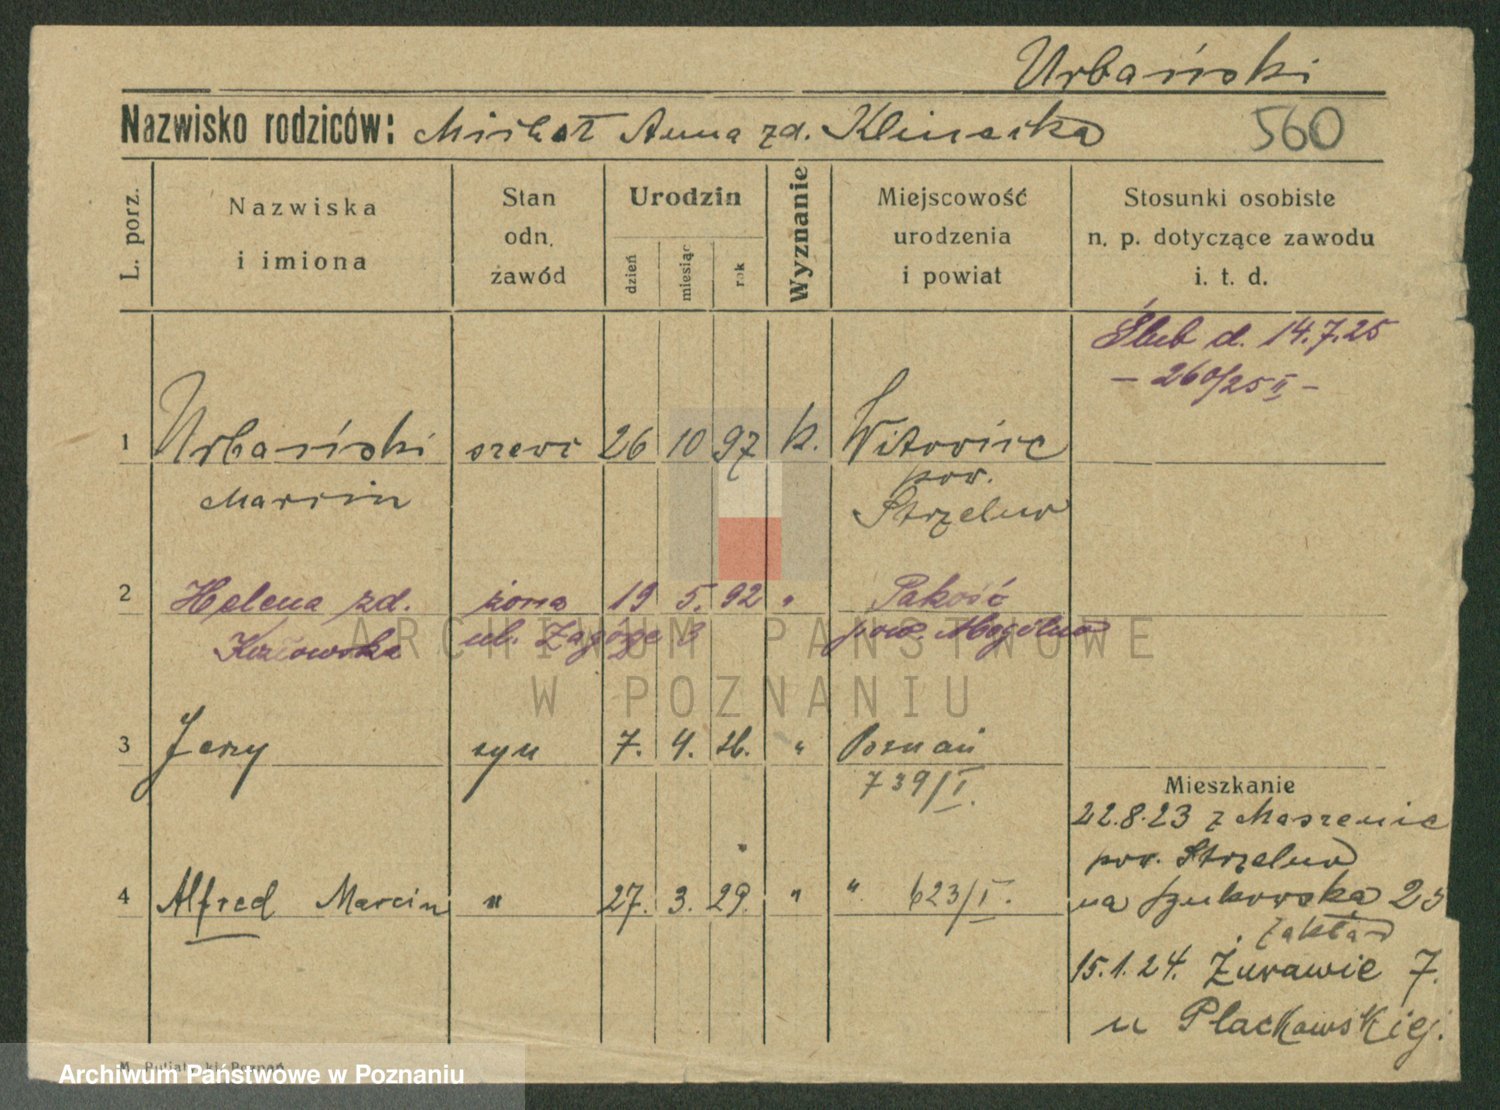 Urbański
Nazwisko rodziców: Michał Anna zd. Klinecka
560
L. porz.
Nazwiska
i imiona
Stan
odn.
zawód
Urodzin
dzień
miesiąc
rok
Wyznanie
Miejscowość
urodzenia
i powiat
Stosunki osobiste
n. p. dotyczące zawodu
i. t. d.
Ślub d. 14.7.25
- 260/25 II -
1 Urbański szewc 26 10 97 k. Witowice
Marcin pow. Strzelno
2 Helena zd. żona 19 5. 92 " Pakość
ul. Zagórze 3 pow. Mogilno
3 Jerzy syn 7. 4. 26. " Poznań
739/I.
Mieszkanie
22.8.23 z
pow. Strzelno
4 Alfred Marcin " 27. 3. 29. " " 623/I.
na 23
zakład
15.1.24. Żurawie 7.
u Plackowskiej.
ARCHIWUM PAŃSTWOWE
W POZNANIU
Poznań
Archiwum Państwowe w Poznaniu